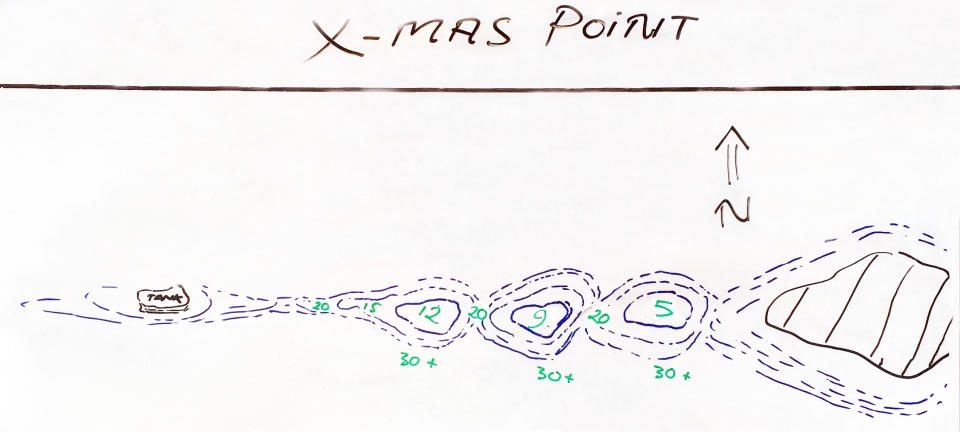 X-MAS POINT
N
TANK
20 15 12 20 9 20 5
30+ 30+ 30+